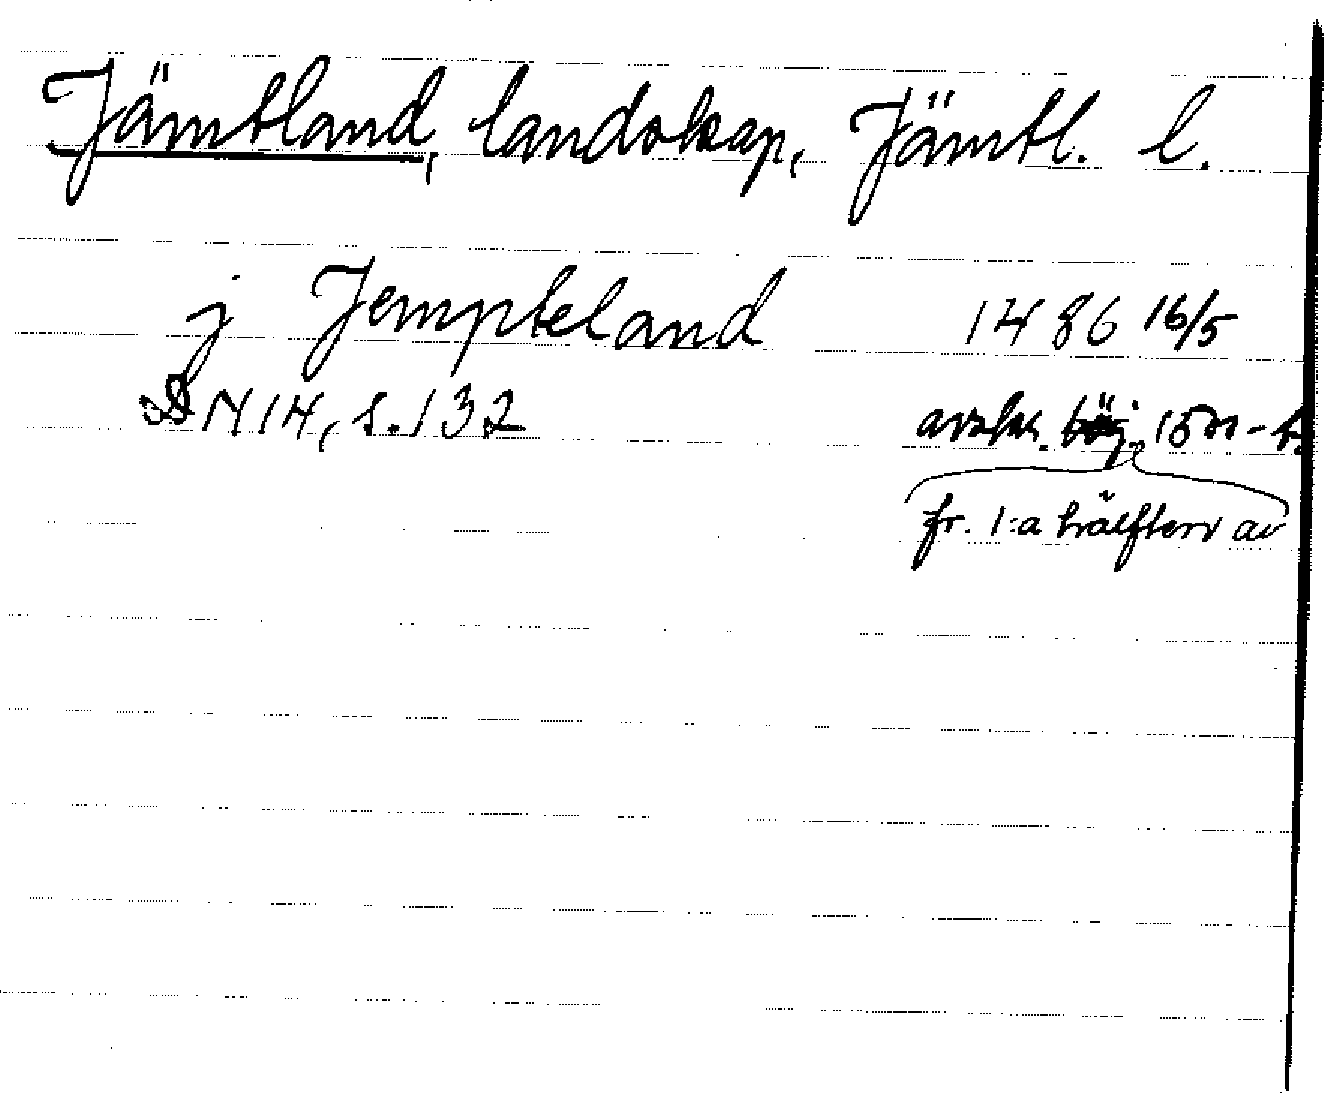 Jämtland, landskap, Jämtl. l.
j Jempteland 1486 16/5
DN 14, s. 132 avskr. 1500-t
fr. 1:a hälften av